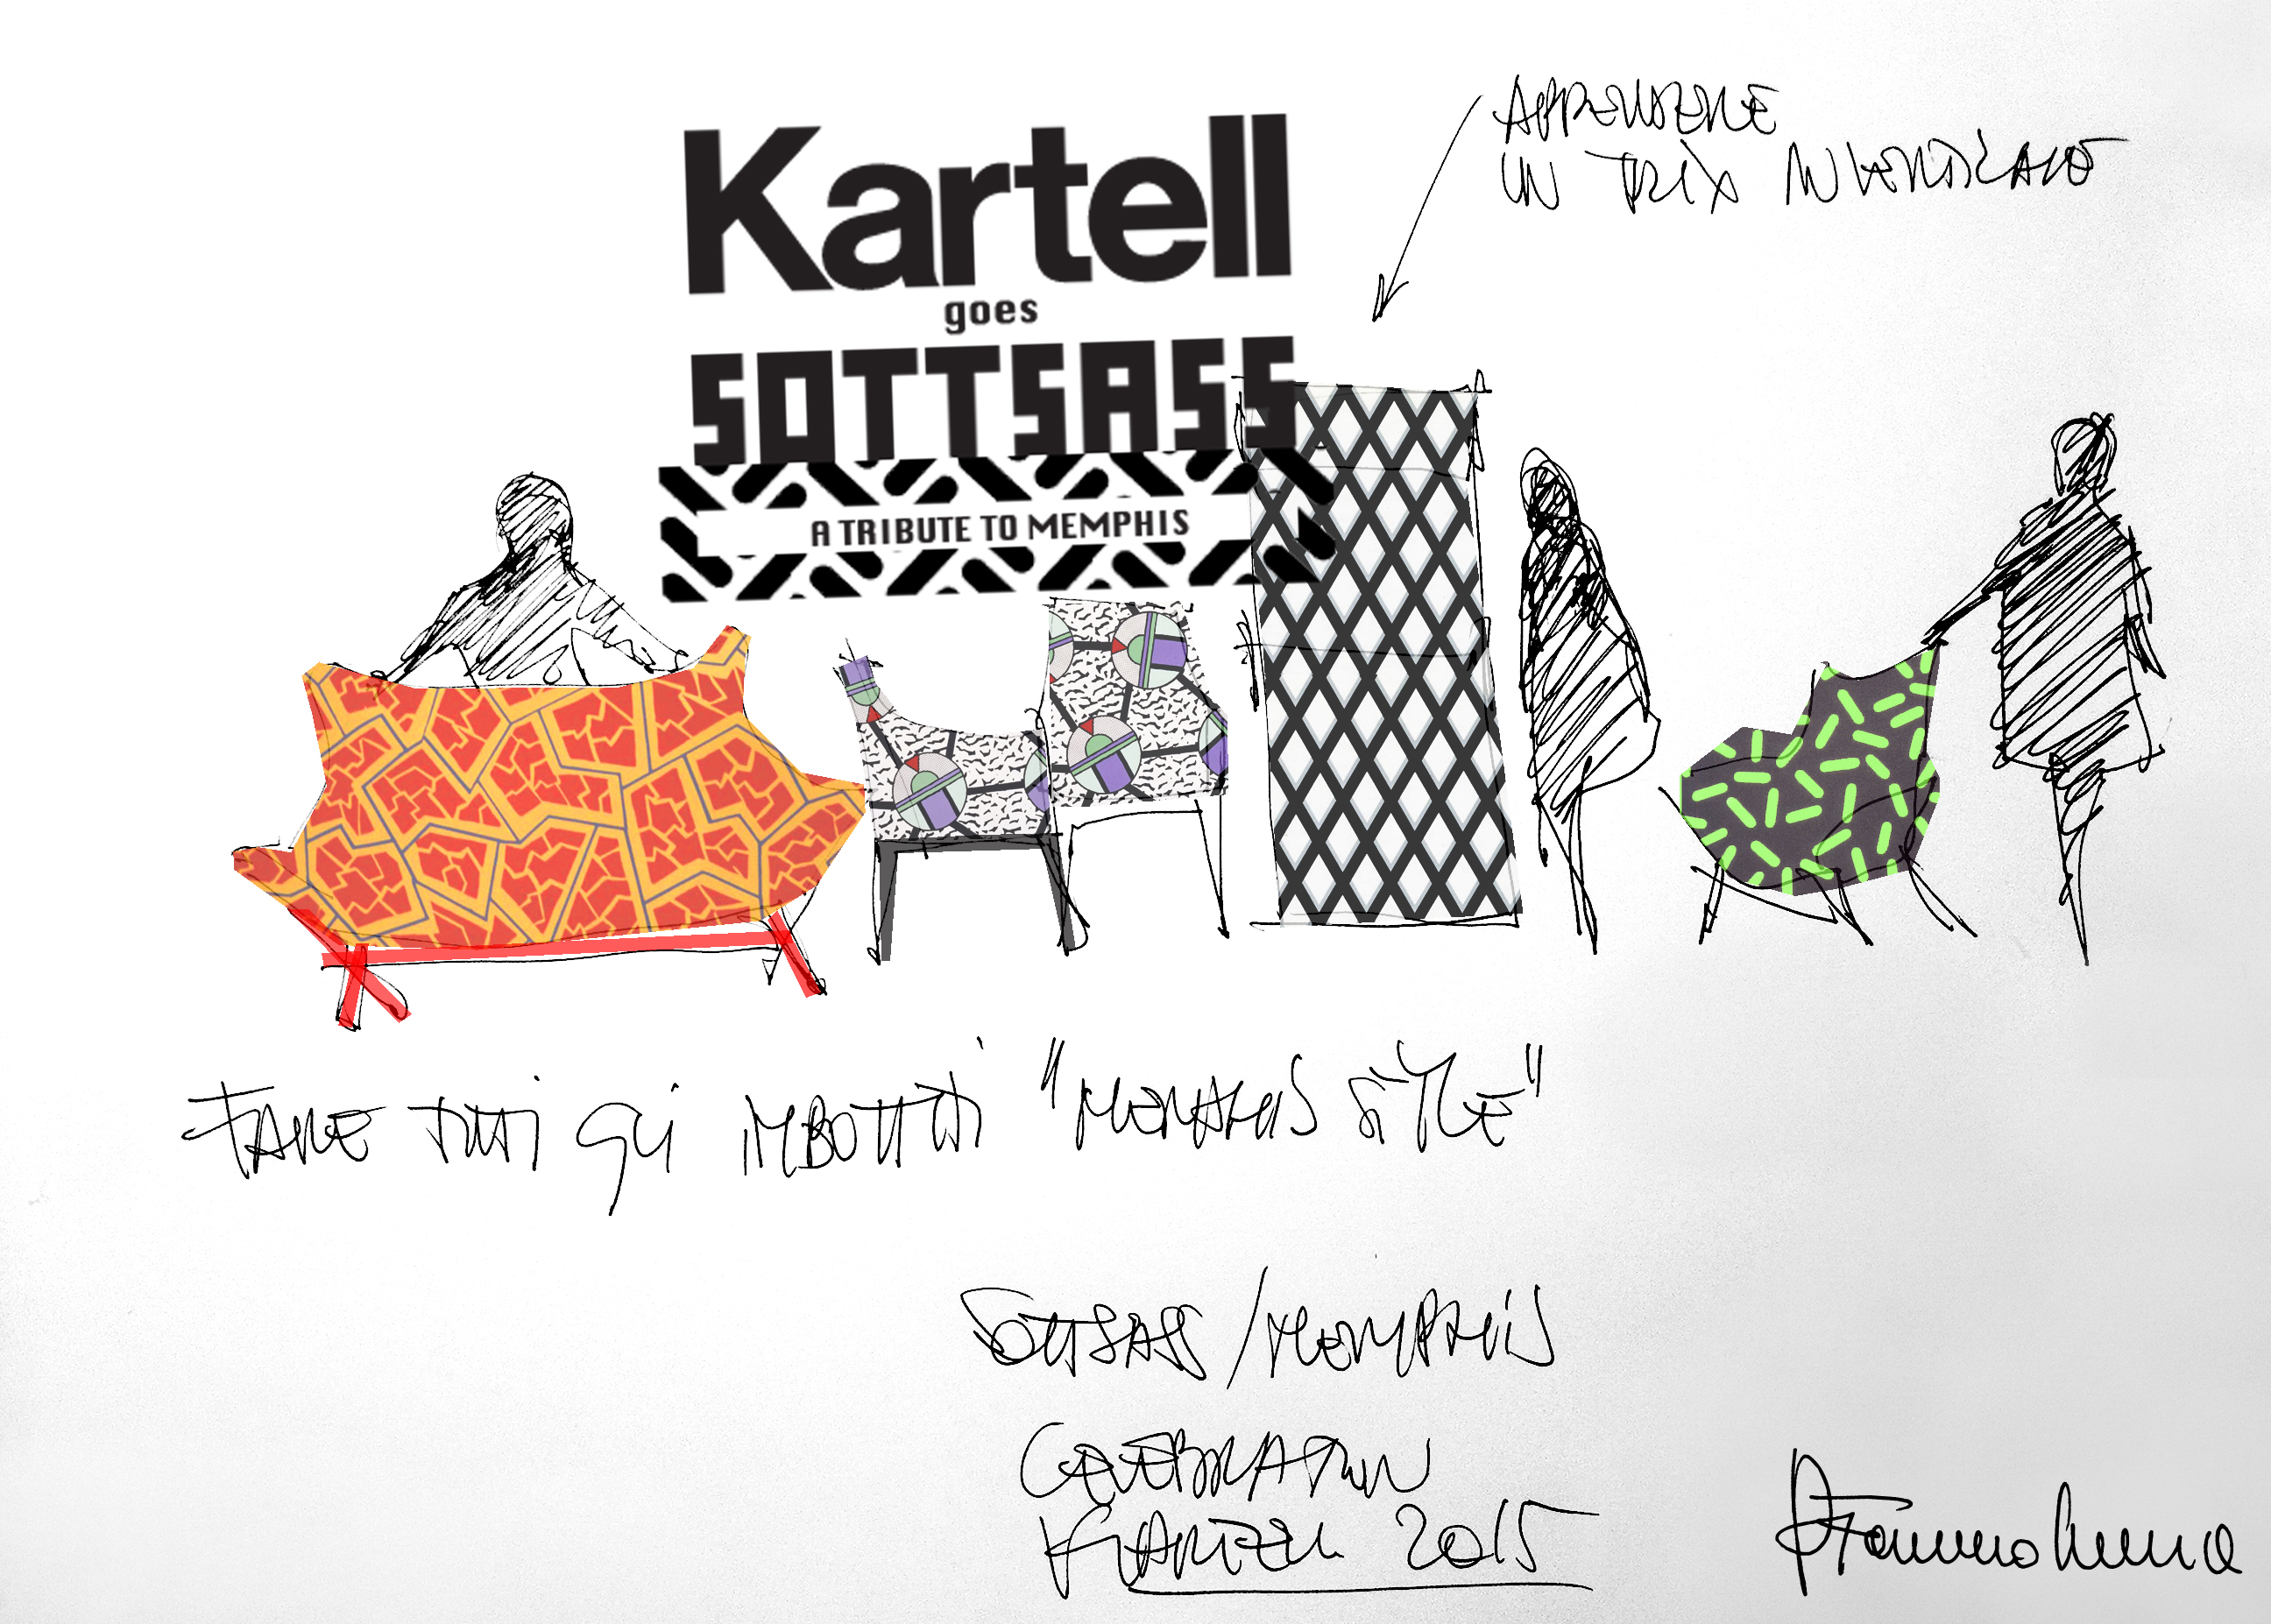 Kartell
goes
SOTTSASS
A TRIBUTE TO MEMPHIS
APPENDERE
UN TRIX IN VERTICALE
FARE TUTTI GLI IMBOTTITI "MEMPHIS STYLE"
SOTTSASS / MEMPHIS
CELEBRATION
KARTELL 2015